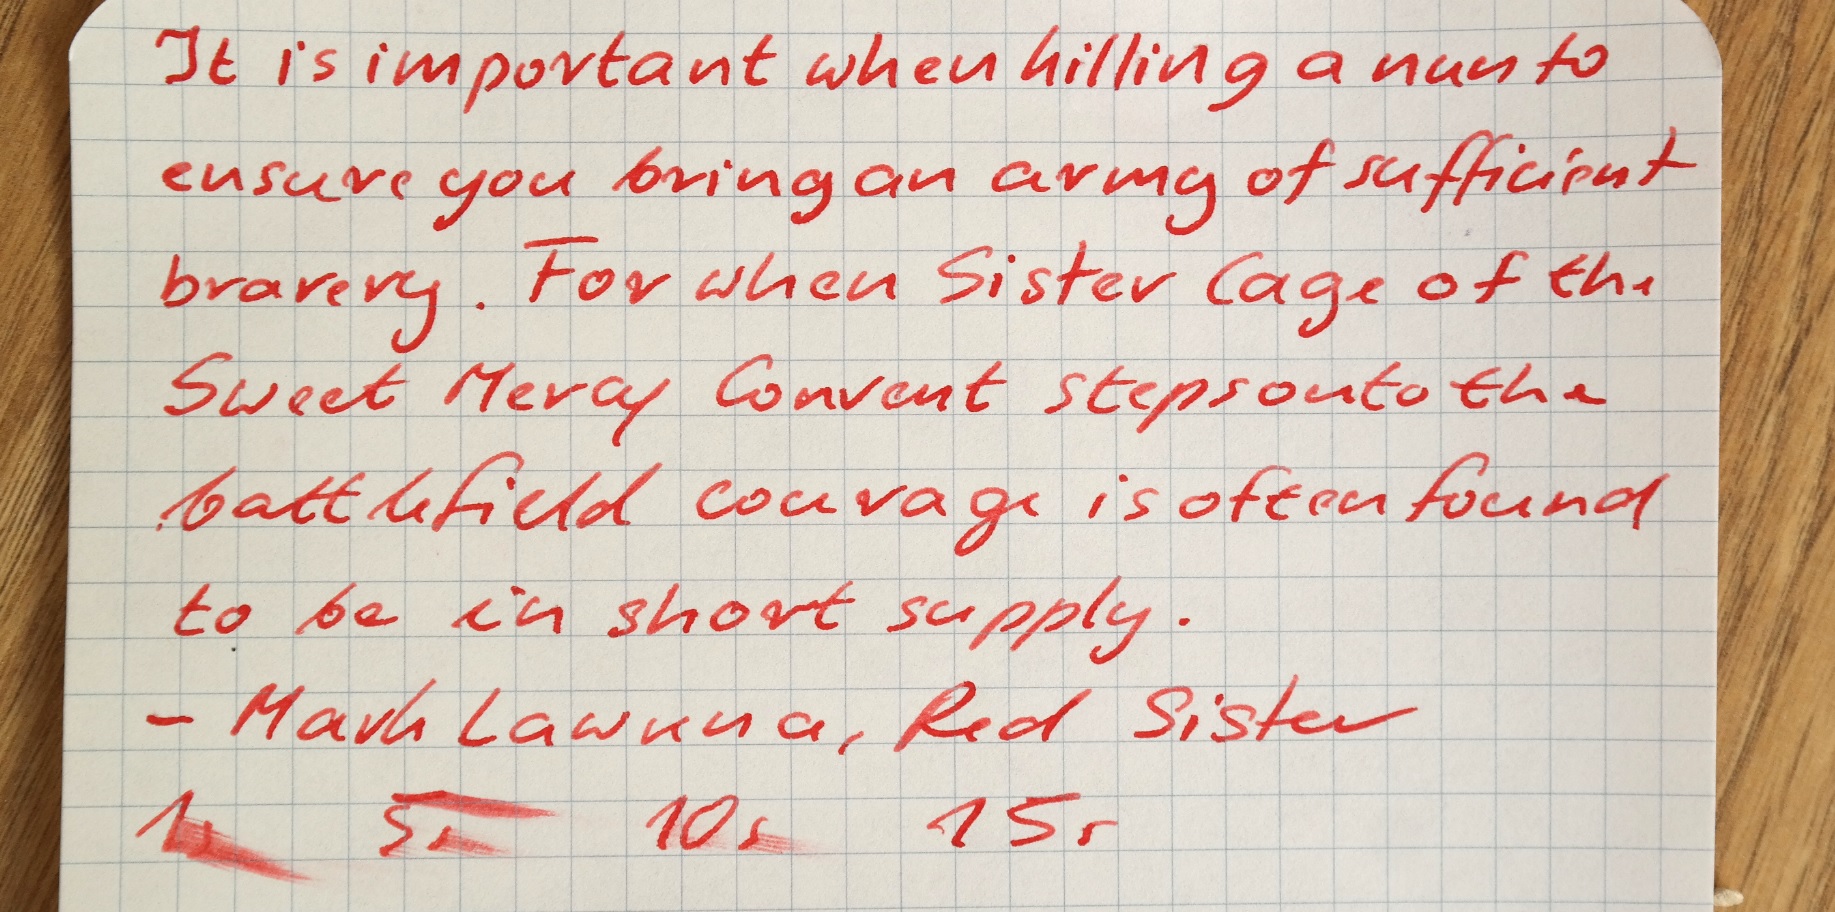 It is important when killing a nun to
ensure you bring an army of sufficient
bravery. For when Sister Cage of the
Sweet Mercy Convent steps onto the
battlefield courage is often found
to be in short supply.
- Mark Lawrence, Red Sister
1s 5s 10s 15s